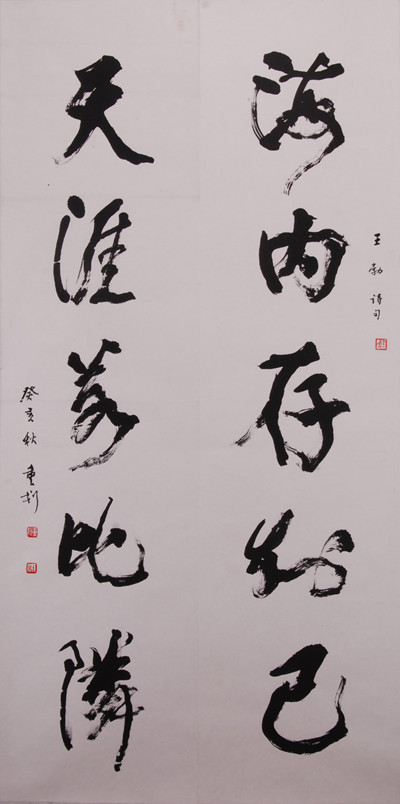 王勃诗句
海内存知己
天涯若比隣
癸亥秋